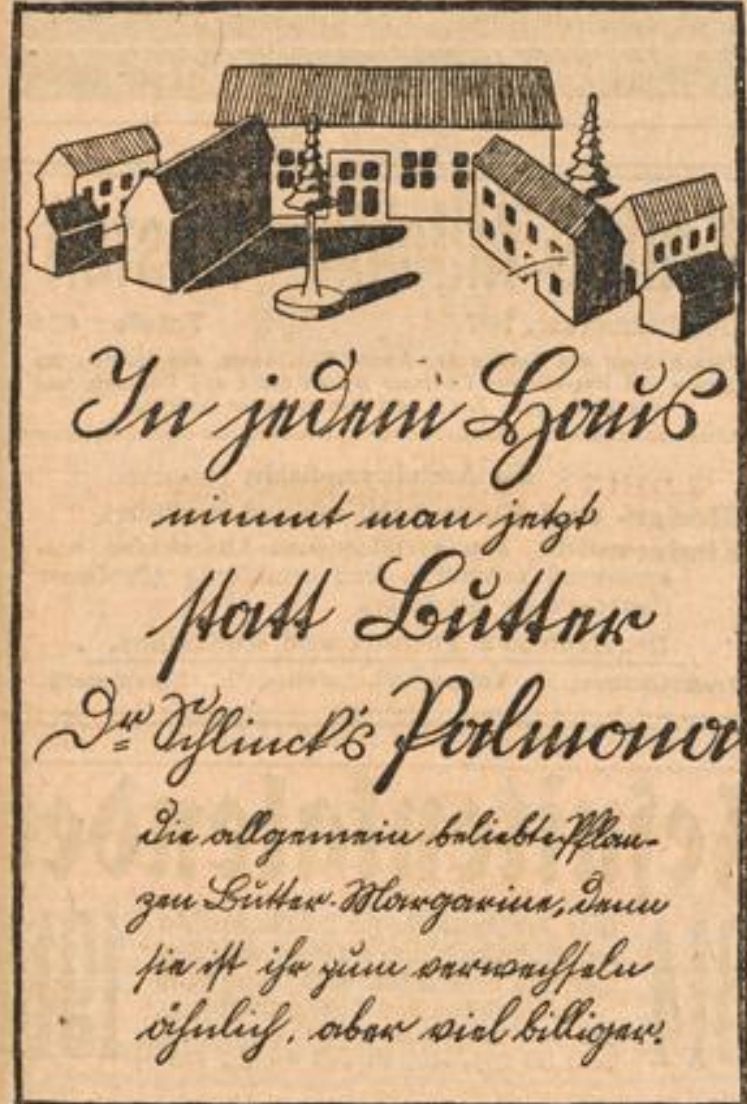 In jedem Haus
nimmt man jetzt
statt Butter
Dr Schlinck's Palmona
die allgemein beliebte Pflan-
zen-Butter-Margarine, denn
sie ist ihr zum verwechseln
ähnlich, aber viel billiger.